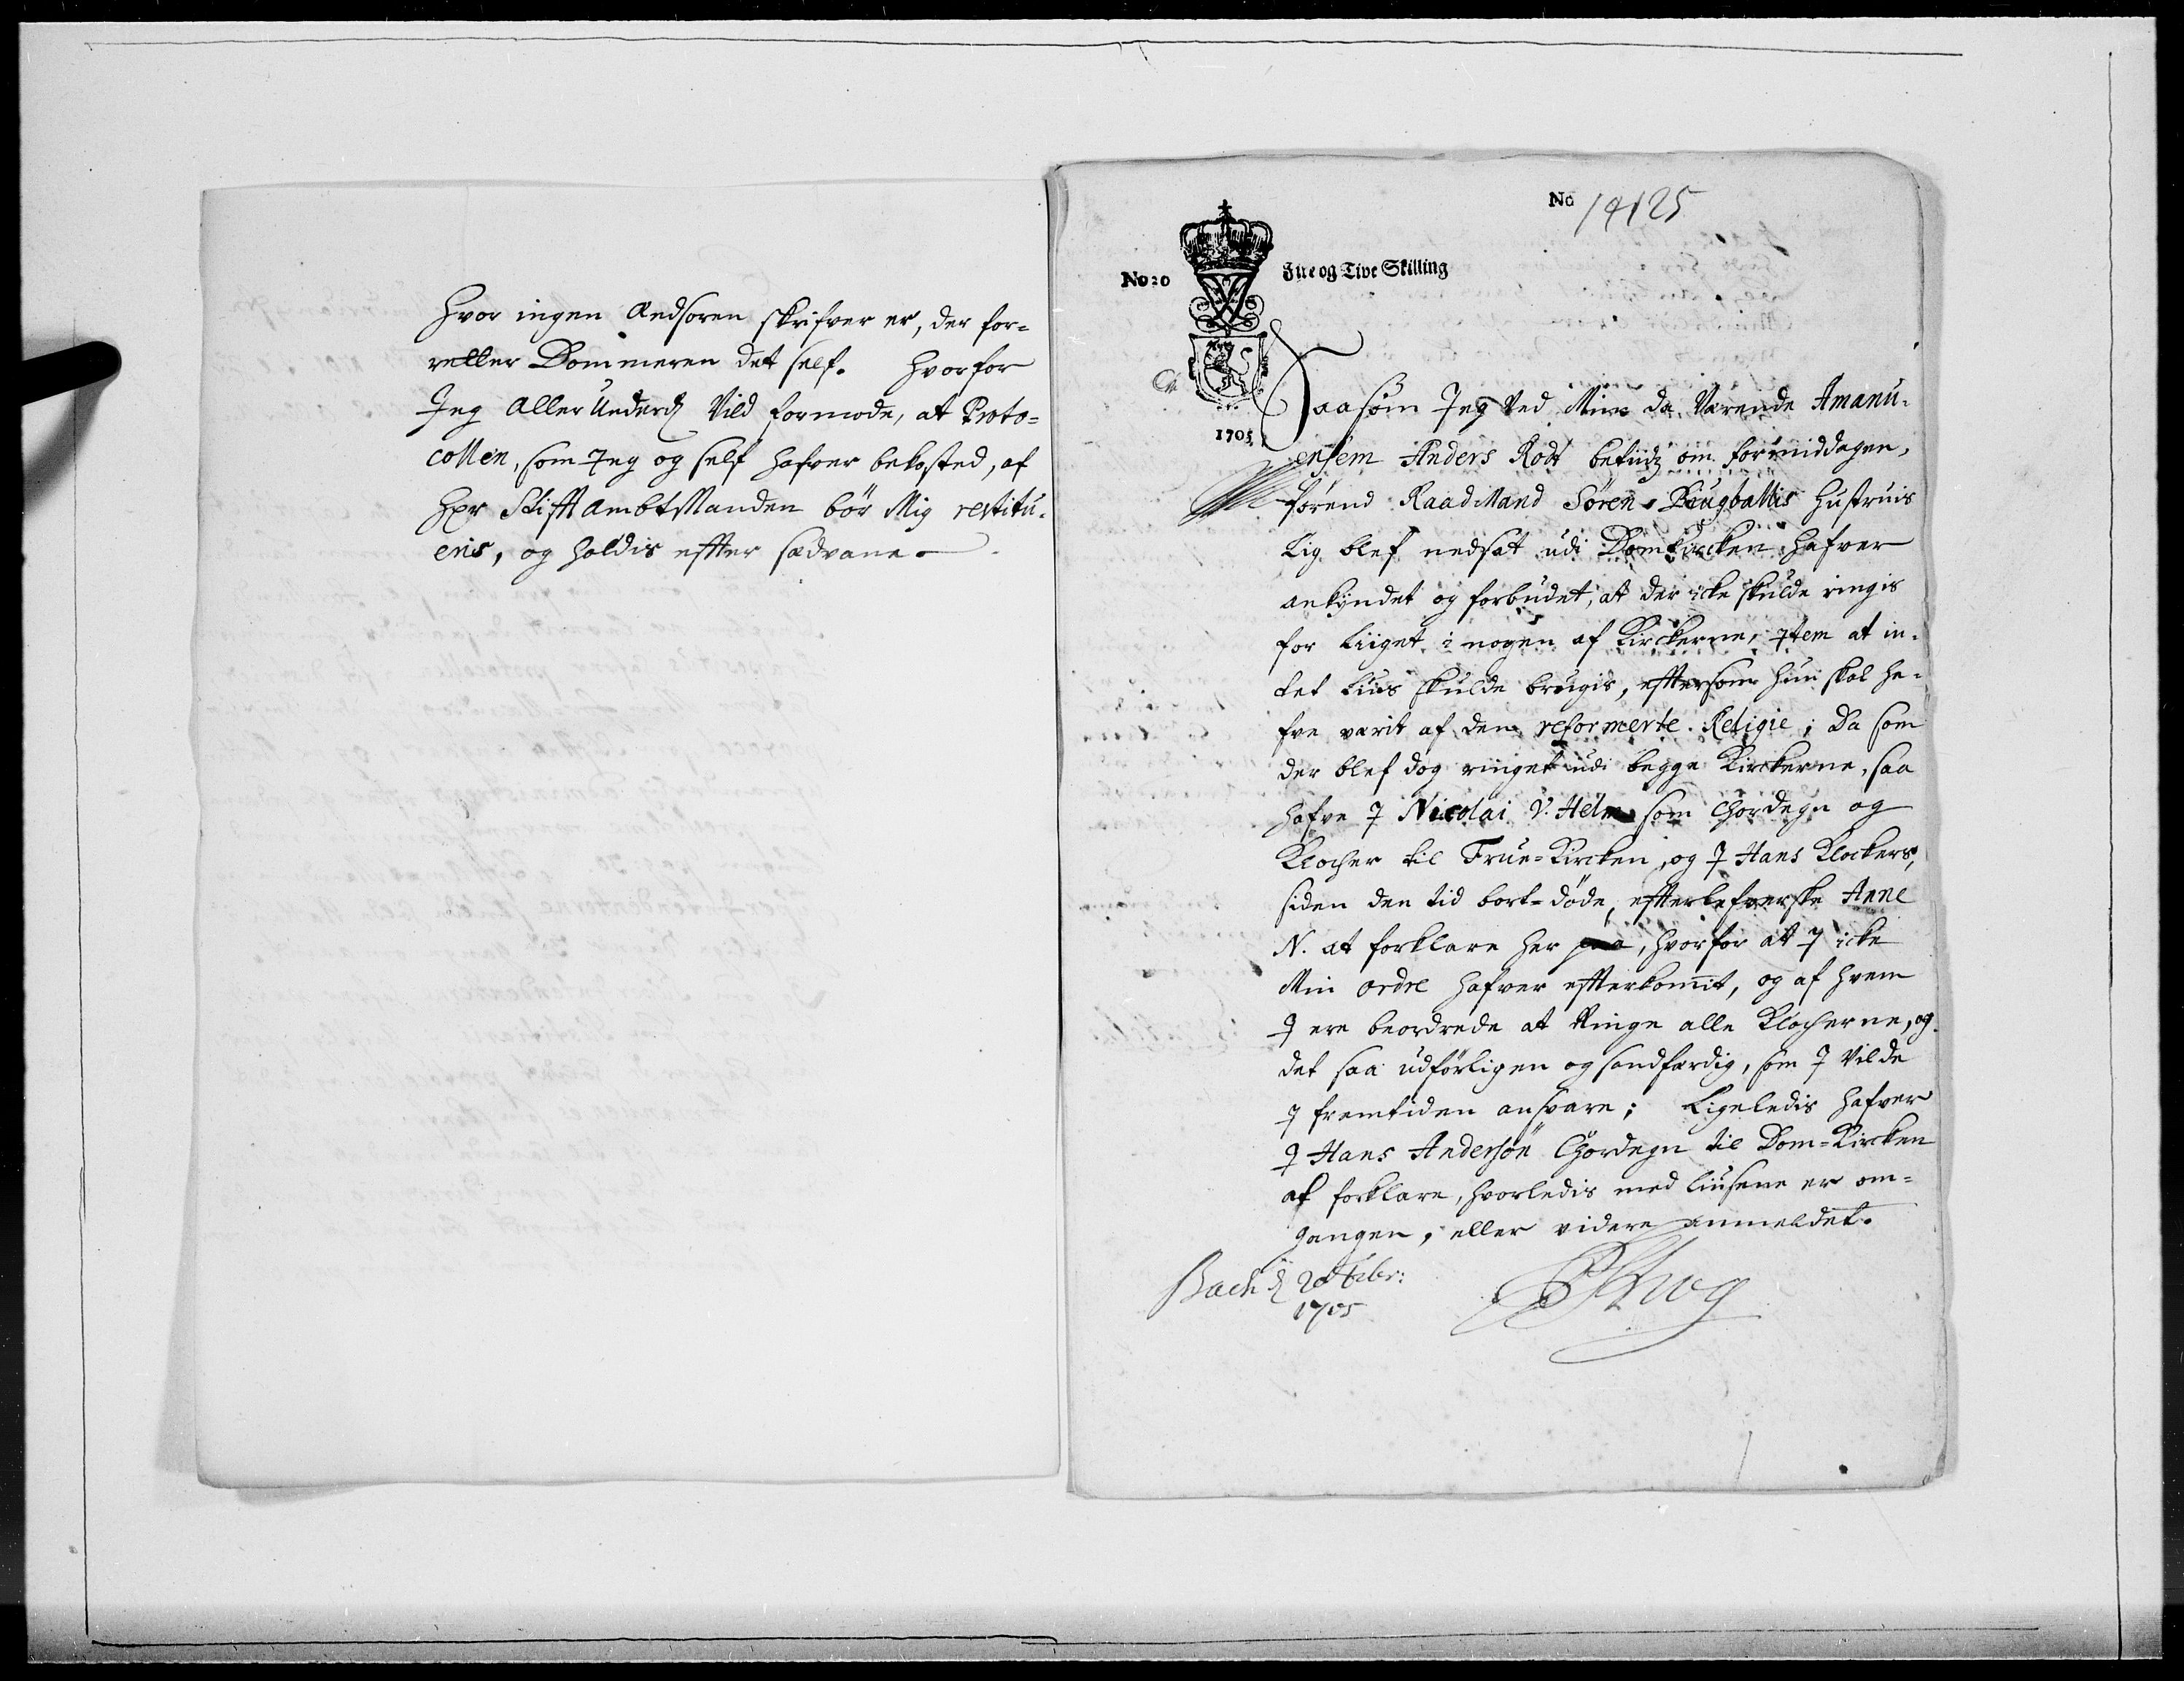 hvor ingen Andsoren skrifver er, der for-
retter Dommeren det self. hvorfor
Jeg Aller Underd: Vild formode, at Proto-
collen, som Jeg og self hafver bekosted, af
Hr Stifft Ambt Manden bör Mig restitu-
eris, og holdis effter sædvane.
No 14125
No 20
Fire og Tive Skilling
1705
Saasom Jeg Ved Min da Værende Amanu-
ensem Anders Rodt betiidz om formiddagen,
förend Raad Mand Sören Baugballis hustruis
Lig blef nedsat udi Domkircken hafver
ankyndet og forbudet, at der icke skulde ringis
for Liiget i nogen af Kirckerne, Item at in-
tet Lius skulde brugis, effterson hun skal ha-
fve værit af den reformerte Religie; Da som
der blef dog ringet udi begge Kirckerne, saa
hafve I Nicolai V. Helm som Chordegn og
Klocher til Frue-Kircken, og I Hans Klockers,
siden den tid bort-döde, effterlefverske Anne
N. at forklare her paa, hvorfor at I icke
Min ordre hafver effterkommit, og af hvem
I ere beordrede at Ringe alle Klocherne, og
det saa udförligen og sandfærdig, som I Vilde
I fremtiden ansvare; Ligeledis hafver
I Hans Andersön Chordegn til Dom-Kircken
at forklare, hvorledis med liusene er om-
gangen, eller videre anmeldet.
Bach d 20 Febr:
1705
Krog